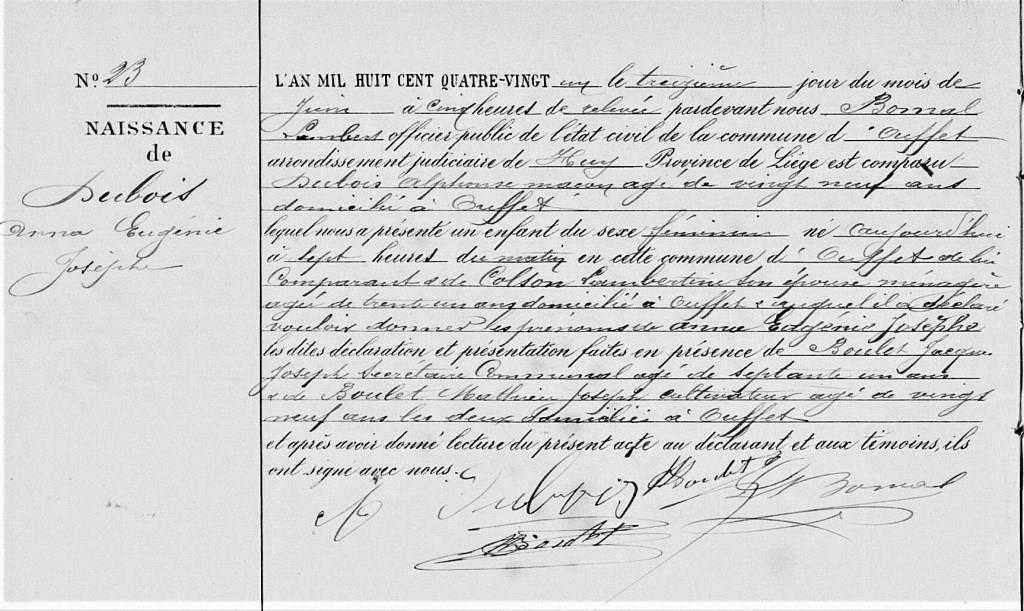 N° 23
NAISSANCE
de
Dubois
Anna Eugénie
Josèphe
L'AN MIL HUIT CENT QUATRE-VINGT un le treizième jour du mois de
Juin à cinq heures de relevée pardevant nous Bomal
Lambert officier public de l'état civil de la commune d' Ouffet
arrondissement judiciaire de Huy Province de Liège est comparu
Dubois Alphonse maçon agé de vingt neuf ans
domicilié à Ouffet
lequel nous a présenté un enfant du sexe féminin né aujourd'hui
à sept heures du matin en cette commune d' Ouffet de lui
Comparant & de Colson Lambertine son épouse ménagère
agée de trente un ans domicilié à Ouffet & auquel il a déclaré
vouloir donner les prénoms de Anna Eugénie Josèphe
les dites déclaration et présentation faites en présence de Boulet Jacques
Joseph Secrétaire Communal agé de septante un ans
& de Boulet Mathieu Joseph cultivateur agé de vingt
neuf ans les deux domicilié à Ouffet
et après avoir donné lecture du présent acte au déclarant et aux témoins, ils
ont signé avec nous.
Dubois Boulet Bomal